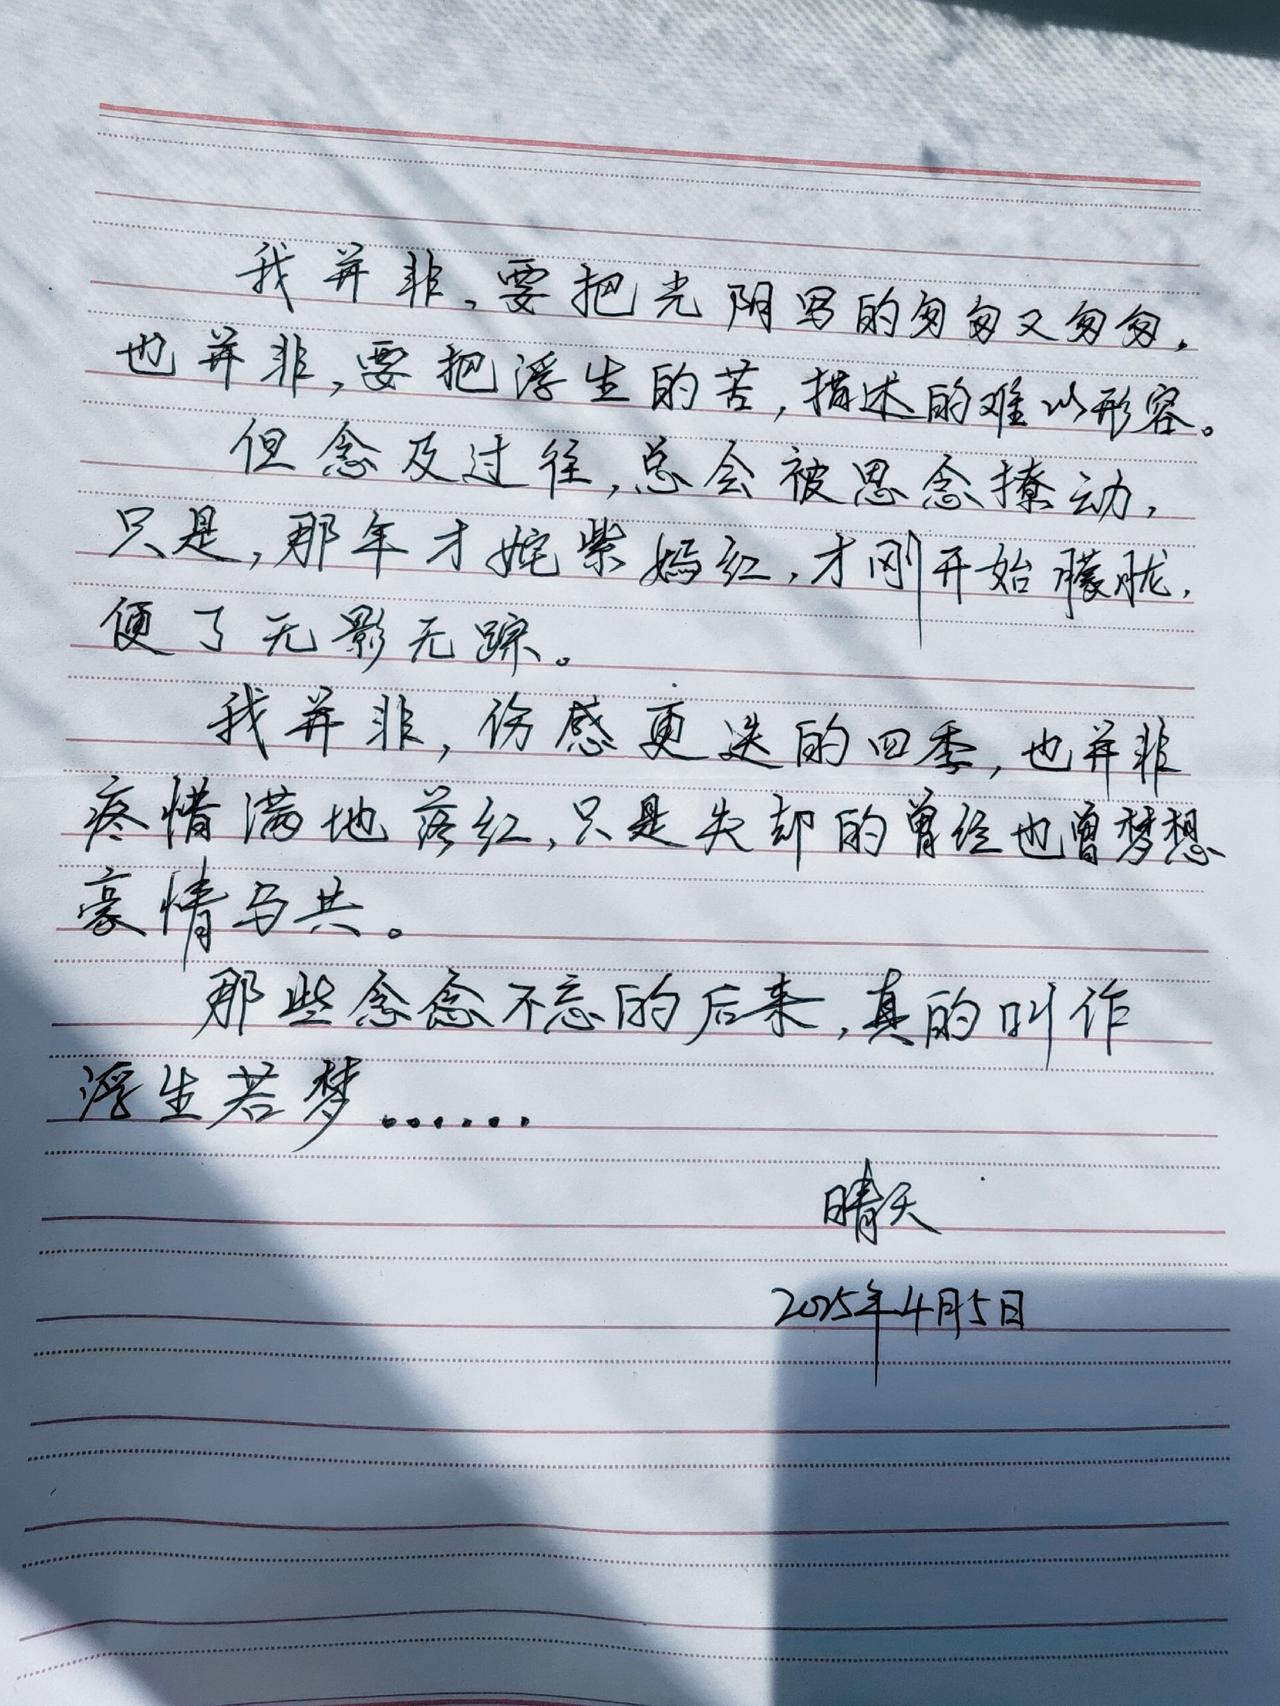 我并非,要把光阴写的匆匆又匆匆,
也并非,要把浮生的苦,描述的难以形容。
但念及过往,总会被思念撩动,
只是,那年才姹紫嫣红,才刚开始朦胧,
便了无影无踪。
我并非,伤感更迭的四季,也并非
疼惜满地落红,只是失却的曾经也曾梦想
豪情与共。
那些念念不忘的后来,真的叫作
浮生若梦......
晴天
2025年4月5日